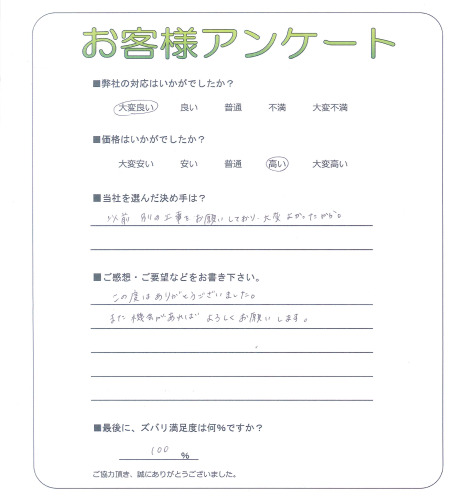 お客様アンケート
■弊社の対応はいかがでしたか？
大変良い 良い 普通 不満 大変不満
■価格はいかがでしたか？
大変安い 安い 普通 高い 大変高い
■当社を選んだ決め手は？
以前 別の工事をお願いしており、大変よかったから。
■ご感想・ご要望などをお書き下さい。
この度はありがとうございました。
また機会があれば よろしくお願いします。
■最後に、ズバリ満足度は何%ですか？
100 %
ご協力頂き、誠にありがとうございました。